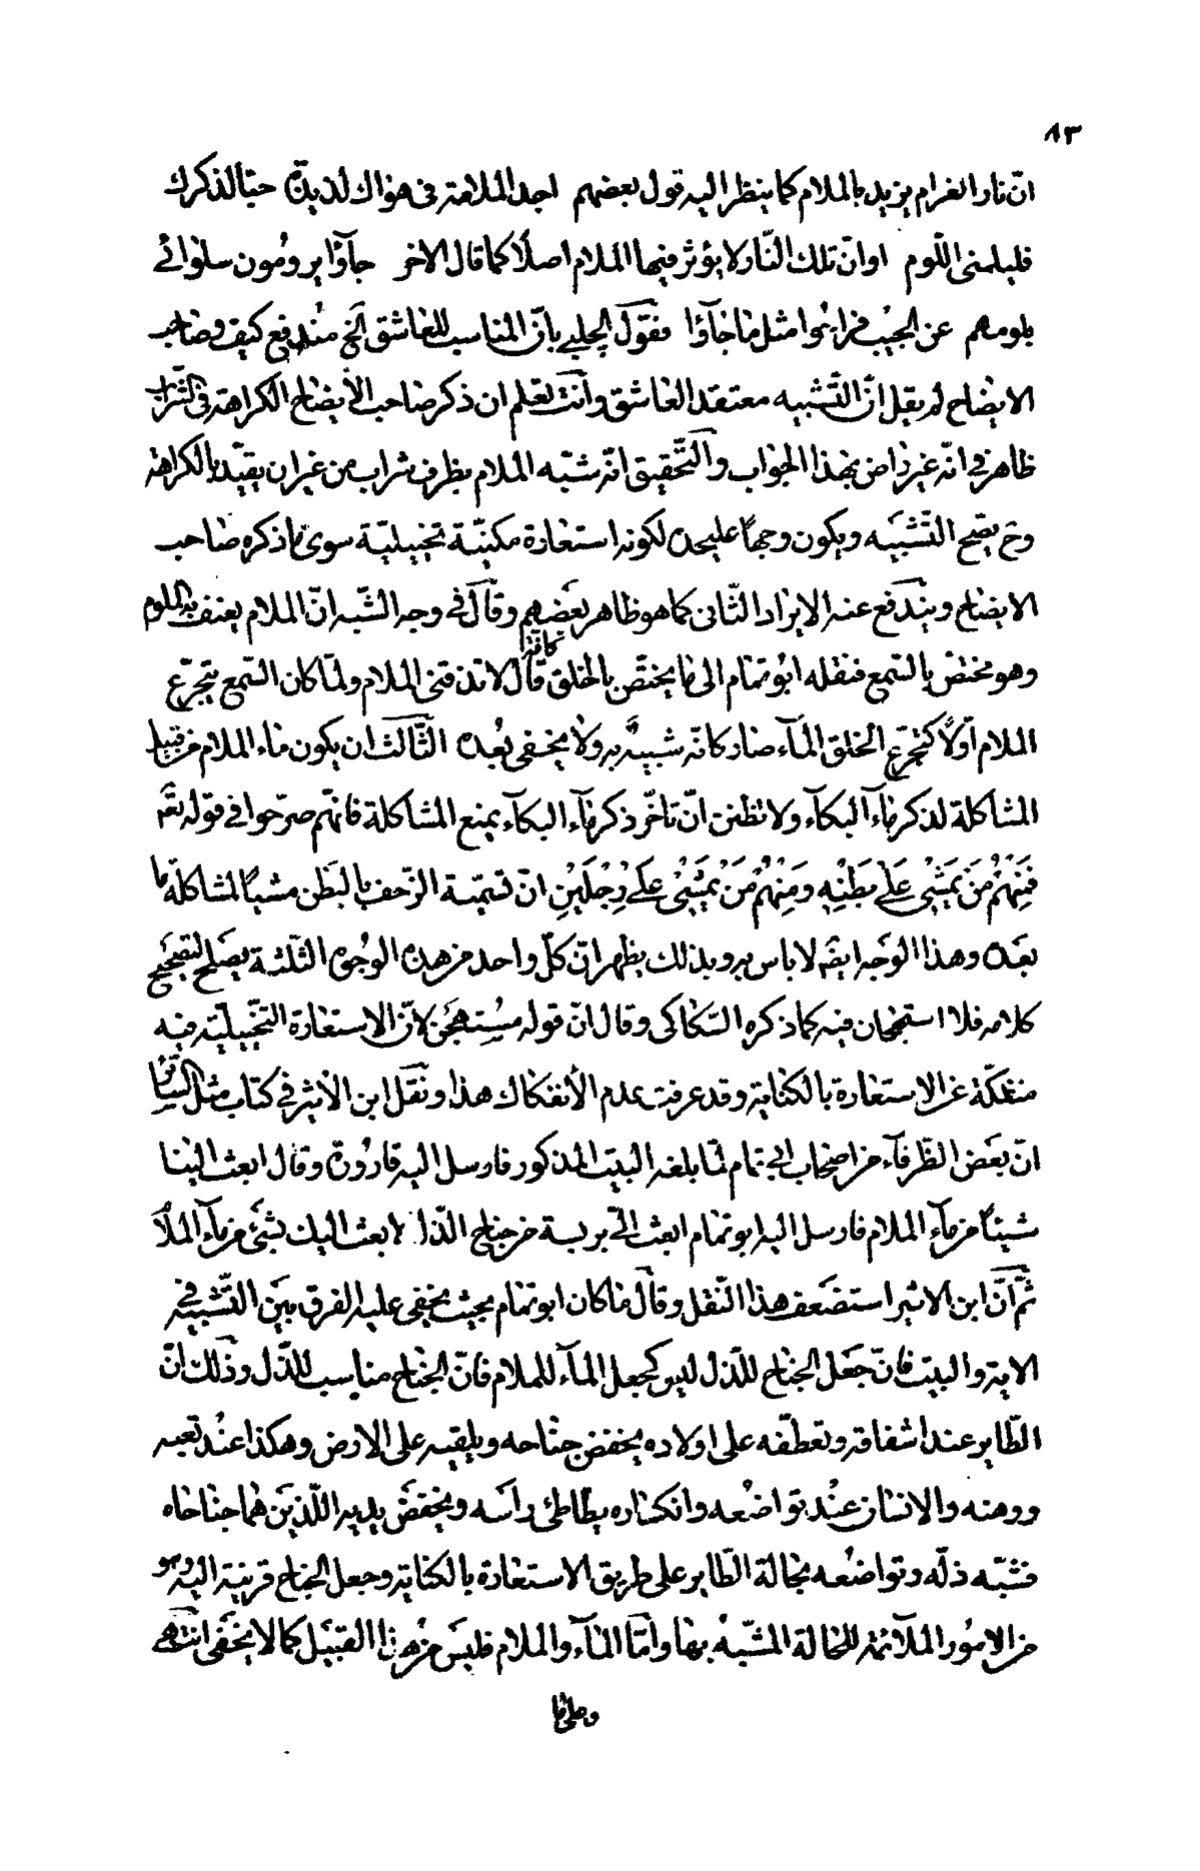 ٨٣
انّ نار الغرام يزيد بالملام كما ينظر اليه قول بعضهم اجد الملامة فى هواك لذيذة حبّا لذكرك
فليلمنى اللّوم او انّ تلك النّار لا يؤثر فيها الملام اصلًا كما قال الاخر جآؤا يرومون سلوانى
بلومهم عن الحبيب فراحوا مثل ما جآؤا فقول الچلبى بانّ المناسب للعاشق الخ مندفع كيف و صاحب
الايضاح لم يقل انّ التّشبيه معتقد العاشق وانت تعلم ان ذكر صاحب الايضاح الكراهة فى الشّراب
ظاهر فى انّه غير راض بهذا الجواب والتّحقيق انّه شبّه الملام بظرف شراب من غير ان يقيّد بالكراهة
وح يصّح التّشبيه ويكون وجهًا عليحده لكونه استعارة مكنيّة تخييليّة سوى ما ذكره صاحب
الايضاح ويندفع عنه الايراد الثّانى كما هو ظاهر بعضهم وقال فى وجه الشّبه انّ الملام يعنف به الملوم
وهو مختصّ بالسّمع فنقله ابو تمام الى ما يختصّ بالحلق كانّه قال لا تذقنى الملام ولمّا كان السّمع يتجرّع
الملام اوّلًا كتجرّع الحلق المآء صار كانّه شبيهٌ به ولا يخفى بُعده الثّالث ان يكون ماء الملام من قبيل
المشاكلة لذكر مآء البكآء ولا تظنن انّ تاخّر ذكر مآء البكآء يمنع المشاكلة فانّهم صرّحوا فى قوله تعّم
فَمِنْهُمْ مَنْ يَمْشِى عَلى بَطْنِهِ وَمِنْهُمْ مَنْ يَمْشِى عَلى رِجْلَيْنِ انّ تسمّية الزّحف بالبطن مشيًا لمشاكلة ما
بعده وهذا الوجه ايضّه لا باس به وبذلك يظهر انّ كلّ واحد من هذه الوجوه الثّلثة يصلح لتصحيح
كلامه فلا استهجان فيه كما ذكره السّكاكى وقال انّ قوله مستهجن لانّ الاستعارة التخّييليّة فيه
منفكّة عن الاستعارة بالكناية وقد عرفت عدم الانفكاك هذا ونقل ابن الاثير فى كتاب مثل السّاير
انّ بعض الظّرفآء من اصحاب ابى تمام لمّا بلغه البيت المذكور فارسل اليه قارورة وقال ابعث الينا
شيئًا من مآء الملام فارسل اليه ابو تمام ابعث الىّ بريشة من جناح الذّل لابعث اليك بشئ من مآء الملآ
ثمّ انّ ابن الاثير استضعف هذا النّقل وقال ما كان ابو تمام بحيث يخفى عليه الفرق بين التّشبيه فى
الاية والبيت فانّ جعل الجناح للذّل ليس كجعل المآء للملام فانّ الجناح مناسب للذّل وذلك انّ
الطّاير عند اشفاقه وتعطّفه على اولاده يخفض جناحه ويلقيه على الارض وهكذا عند تعبه
ووهنه والانسان عند تواضعه وانكساره يطاطئ راسه ويخفض يديه اللّذين هما جناحاه
فشبّه ذلّه وتواضعه بحالة الطّاير على طريق الاستعارة بالكناية وجعل الجناح قرينة اليه وهو
من الامور الملآئمة للحالة المشبّه بها وامّا المآء والملام فليس من هذا القبيل كما لا يخفى انتهى
وعلى ما